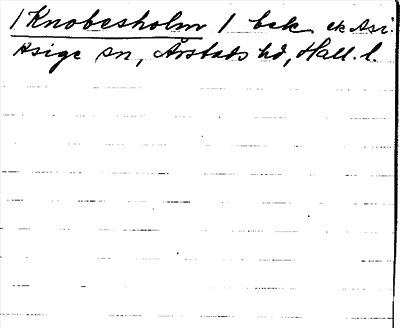 /Knobesholm/ bek ek Asi.
Asige sn, Årstads hd, Hall. l.